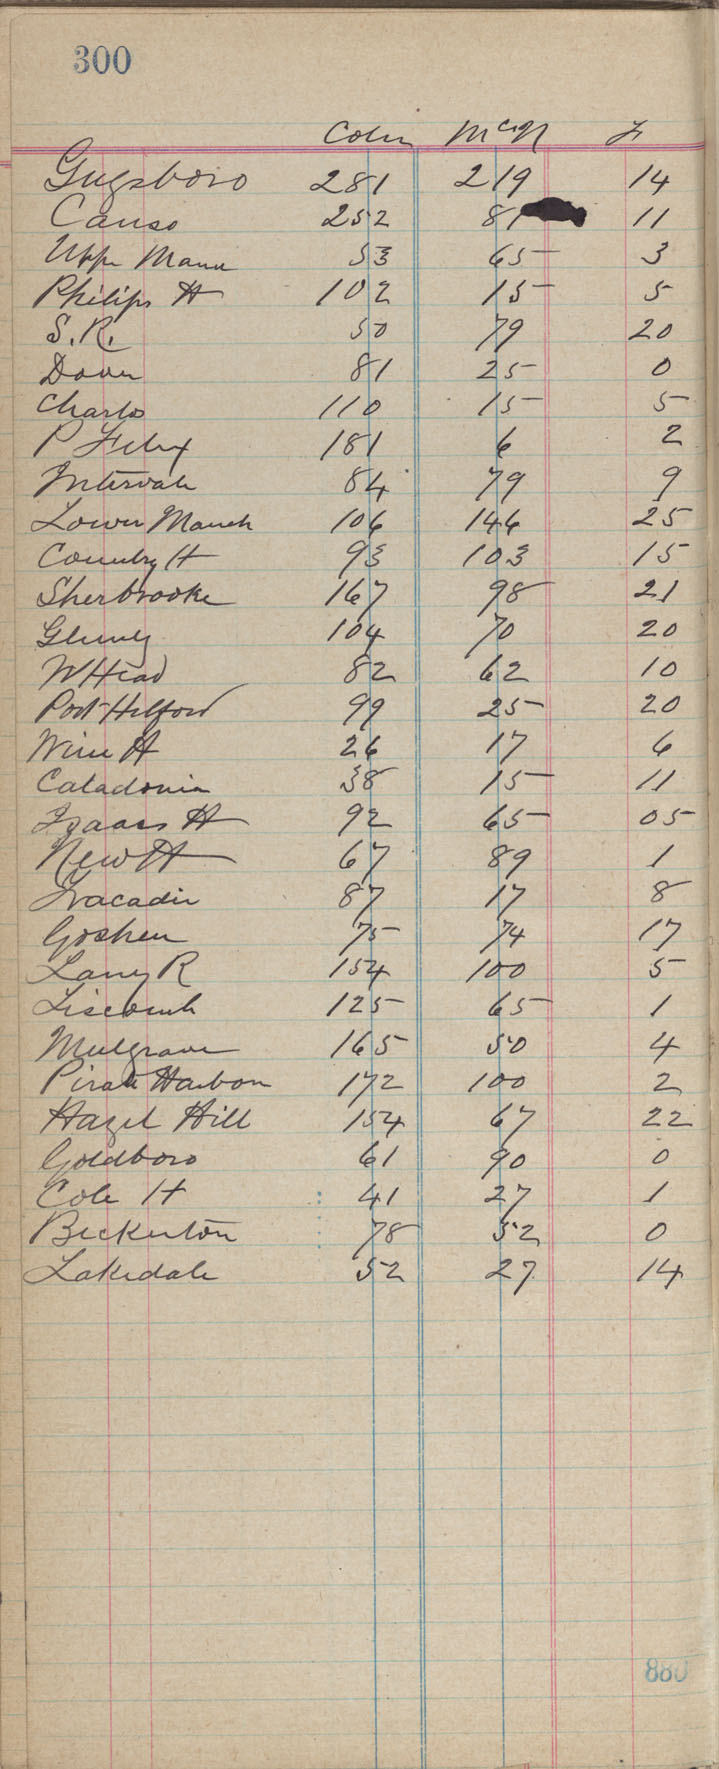 300
Colin McN F
Guysboro 281 219 14
Canso 252 81 11
Upper Mann 53 65 3
Philips H 102 15 5
S. R. 50 79 20
Dover 81 25 0
Charlos 110 15 5
P Felix 181 6 2
Intervale 84 79 9
Lower Manch 106 146 25
Country H 93 103 15
Sherbrooke 167 98 21
Glenelg 104 70 20
W Head 82 62 10
Port Hilford 99 25 20
Wine H 26 17 6
Caladonia 38 15 11
Isaacs H 92 65 05
New H 67 89 1
Tracadie 87 17 8
Goshen 75 74 17
Larry R 154 100 5
Liscomb 125 65 1
Mulgrave 165 50 4
Pirate Harbour 172 100 2
Hazel Hill 154 67 22
Goldboro 61 90 0
Cole H 41 27 1
Beckerton 78 52 0
Lakedale 52 27 14
880